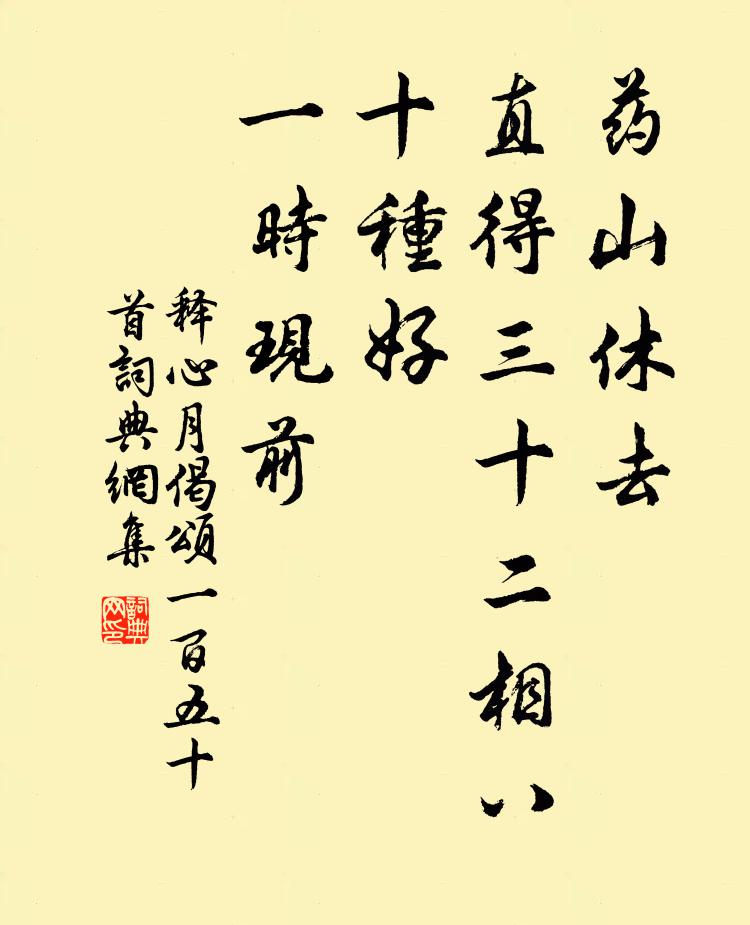 药山休去
直得三十二相八
十種好
一時現前
释心月偈頌一百五十
首詞典網集
詞典
网印